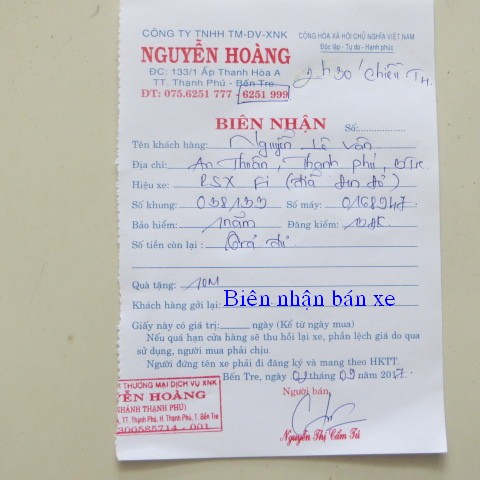 CÔNG TY TNHH TM-DV-XNK
NGUYỄN HOÀNG
ĐC: 133/1 Ấp Thanh Hòa A
TT. Thạnh Phú - Bến Tre
ĐT: 075.6251 777 - 6251 999
CỘNG HÒA XÃ HỘI CHỦ NGHĨA VIỆT NAM
Độc lập - Tự do - Hạnh phúc
2h30' chiều
BIÊN NHẬN
Số:
Tên khách hàng: Nguyễn Lê Văn
Địa chỉ: An Thuận, Thạnh phú, BTre
Hiệu xe: RSX Fi (đĩa đen đỏ)
Số khung: 038133 Số máy: 0168247
Bảo hiểm: 1năm Đăng kiểm:
Số tiền còn lại: Trả đủ
Quà tặng: NON
Khách hàng gởi lại: Biên nhận bán xe
Giấy này có giá trị: ngày (Kể từ ngày mua)
Nếu quá hạn cửa hàng sẽ thu hồi lại xe, phần lệch giá do qua
sử dụng, người mua phải chịu.
Người đứng tên xe phải đi đăng ký và mang theo HKTT.
Bến Tre, 02 tháng 09 năm 2017.
Người bán
THƯƠNG MẠI DỊCH VỤ XNK
YỄN HOÀNG
HÁNH THẠNH PHÚ)
TT. Thạnh Phú, H. Thạnh Phú, T. Bến Tre
300585714 - 001
Nguyễn Thị Cẩm Tú